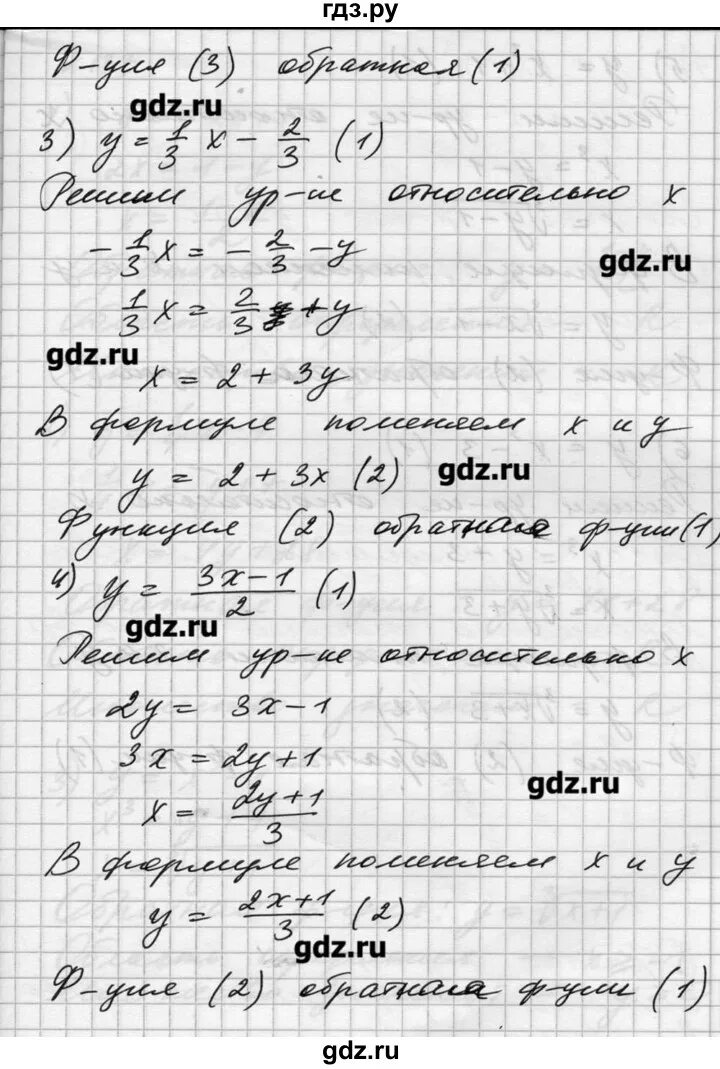 гдз.ру
Ф-ция (3) обратная (1)
gdz.ru
3) y = 1/3 x - 2/3 (1)
Решим ур-ие относительно x
- 1/3 x = - 2/3 - y
gdz.ru
1/3 x = 2/3 + y
gdz.ru
x = 2 + 3y
В формуле поменяем x и y
y = 2 + 3x (2)
gdz.ru
Функция (2) обратная ф-ции (1)
4) y = (3x - 1)/2 (1)
gdz.ru
Решим ур-ие относительно x
2y = 3x - 1
3x = 2y + 1
gdz.ru
x = (2y + 1)/3
В формуле поменяем x и y
y = (2x + 1)/3 (2)
gdz.ru
Ф-ция (2) обратная ф-ции (1)
gdz.ru